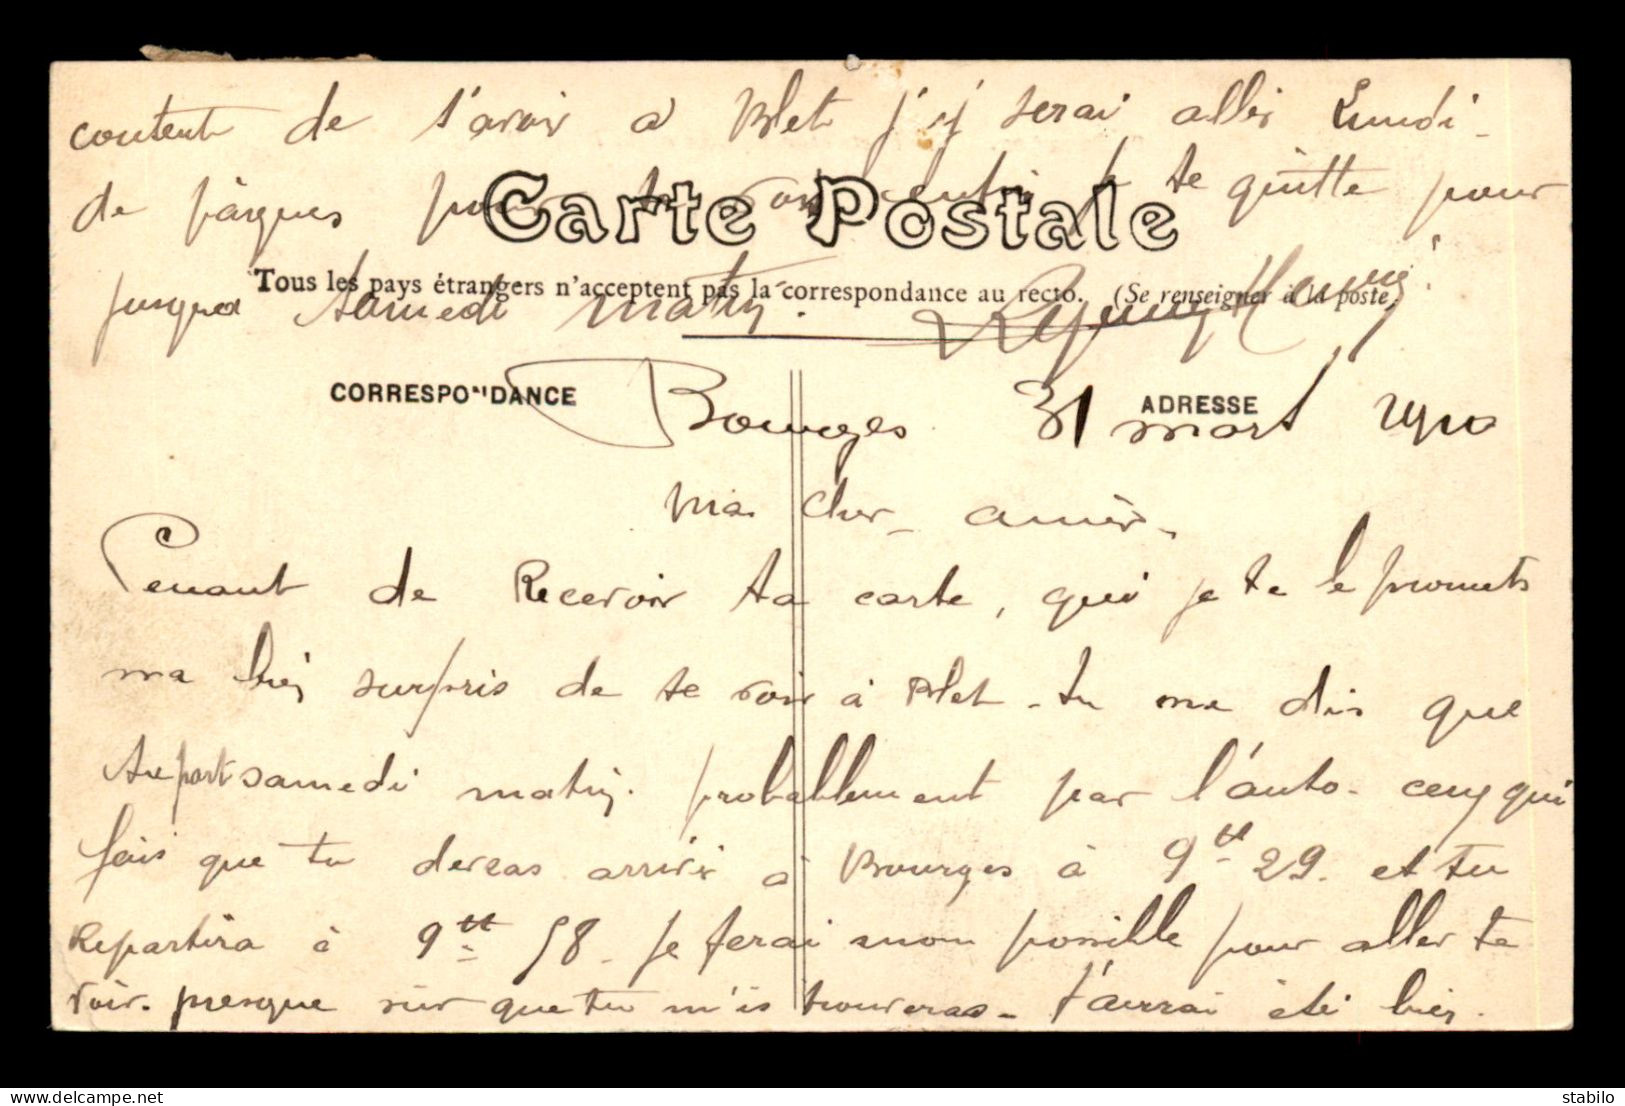 content de t'avoir a Blet j'y serai aller Lundi
de pâques pour te voir je te quitte pour
Carte Postale
Tous les pays étrangers n'acceptent pas la correspondance au recto. (Se renseigner à la poste.)
jusqua samedi matin.
CORRESPONDANCE
ADRESSE
Bourges 31 mars 1910
Ma cher amie
Venant de Recevoir ta carte, qui je te le promets
ma bien surpris de te voir à Blet - tu me dis que
tu part samedi matin. probablement par l'auto - ceux qui
fais que tu devras arriver à Bourges à 9 H 29. et tu
Repartira à 9 H 58 - je ferai mon possible pour aller te
voir. presque sûr que tu m'is trouveras - J'aurrai été bien
delcampe.net
stabilo